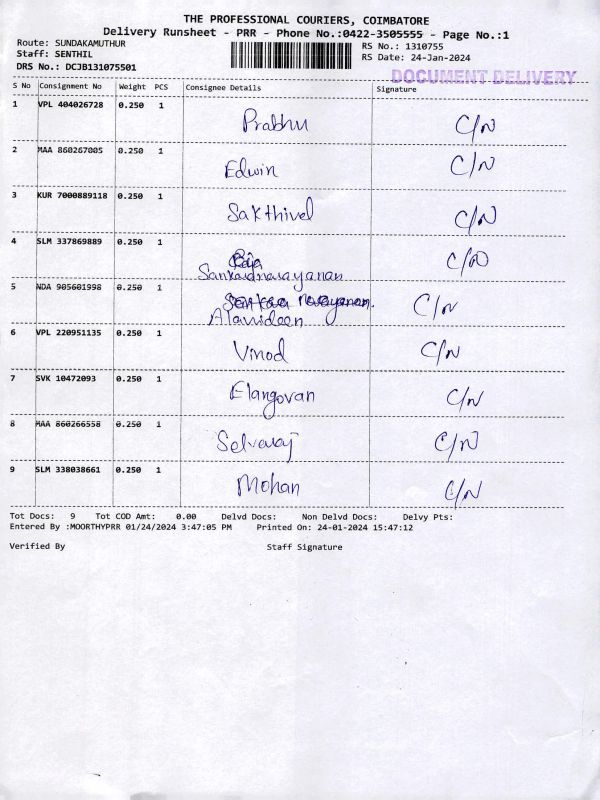 THE PROFESSIONAL COURIERS, COIMBATORE
Delivery Runsheet - PRR - Phone No.:0422-3505555 - Page No.:1
Route: SUNDAKAMUTHUR
RS No.: 1310755
Staff: SENTHIL
RS Date: 24-Jan-2024
DRS No.: DCJB131075501
DOCUMENT DELIVERY
S No Consignment No Weight PCS Consignee Details Signature
1 VPL 404026728 0.250 1
Prabhu C/N
2 MAA 860267005 0.250 1
Edwin C/N
3 KUR 7000889118 0.250 1
Sakthivel C/N
4 SLM 337869889 0.250 1
C/N
Sankaranarayanan
5 NDA 905601998 0.250 1
C/N
Alavudeen
6 VPL 220951135 0.250 1
Vinod C/N
7 SVK 10472093 0.250 1
Elangovan C/N
8 MAA 860266558 0.250 1
Selvaraj C/N
9 SLM 338038661 0.250 1
Mohan C/N
Tot Docs: 9 Tot COD Amt: 0.00 Delvd Docs: Non Delvd Docs: Delvy Pts:
Entered By :MOORTHYPRR 01/24/2024 3:47:05 PM Printed On: 24-01-2024 15:47:12
Verified By Staff Signature